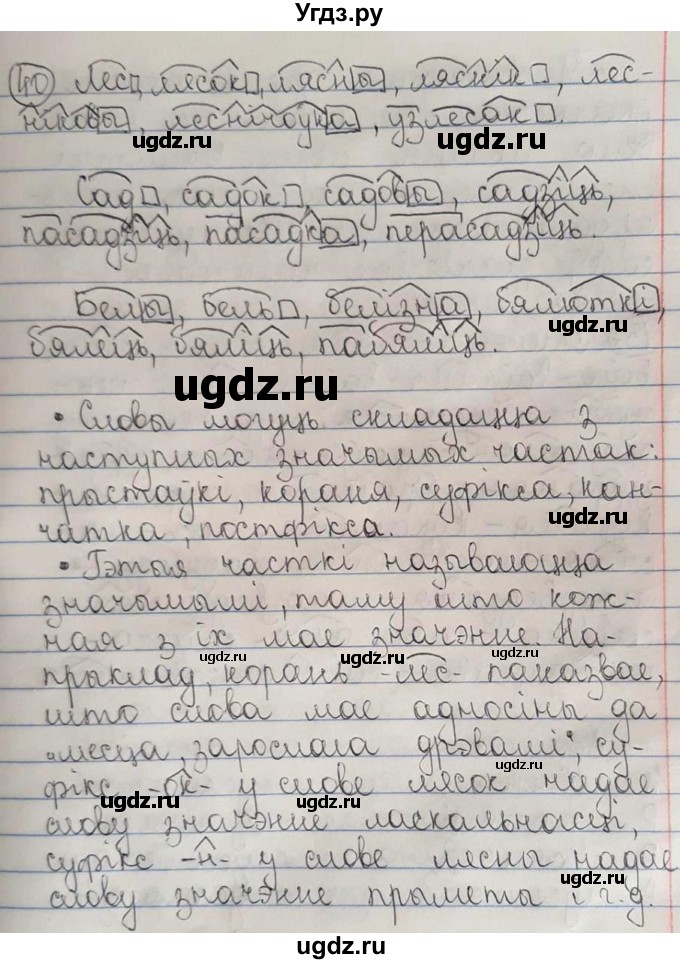 Угдз.ру
40 Лес, лясок, лясны, ляснік, лес-
ніковы, леснічоўка, узлесак.
ugdz.ru ugdz.ru
Сад, садок, садовы, садзіць,
пасадзіць, пасадка, перасадзіць.
Белы, бель, белізна, бялюткі,
ugdz.ru
бялець, бяліць, пабяліць.
ugdz.ru
• Словы могуць складацца з
наступных значымых частак:
прыстаўкі, кораня, суфікса, кан-
чатка, постфікса.
ugdz.ru
• Гэтыя часткі называюцца
значымымі, таму што кож-
ная з іх мае значэнне. На-
ugdz.ru ugdz.ru
прыклад, корань -лес- паказвае,
што слова мае адносіны да
"месца, зарослага дрэвамі", су-
фікс -ок- у слове лясок надае
ugdz.ru ugdz.ru
слову значэнне ласкальнасці,
суфікс -н- у слове лясны надае
ugdz.ru
слову значэнне прыметы і г.д.
ugdz.ru